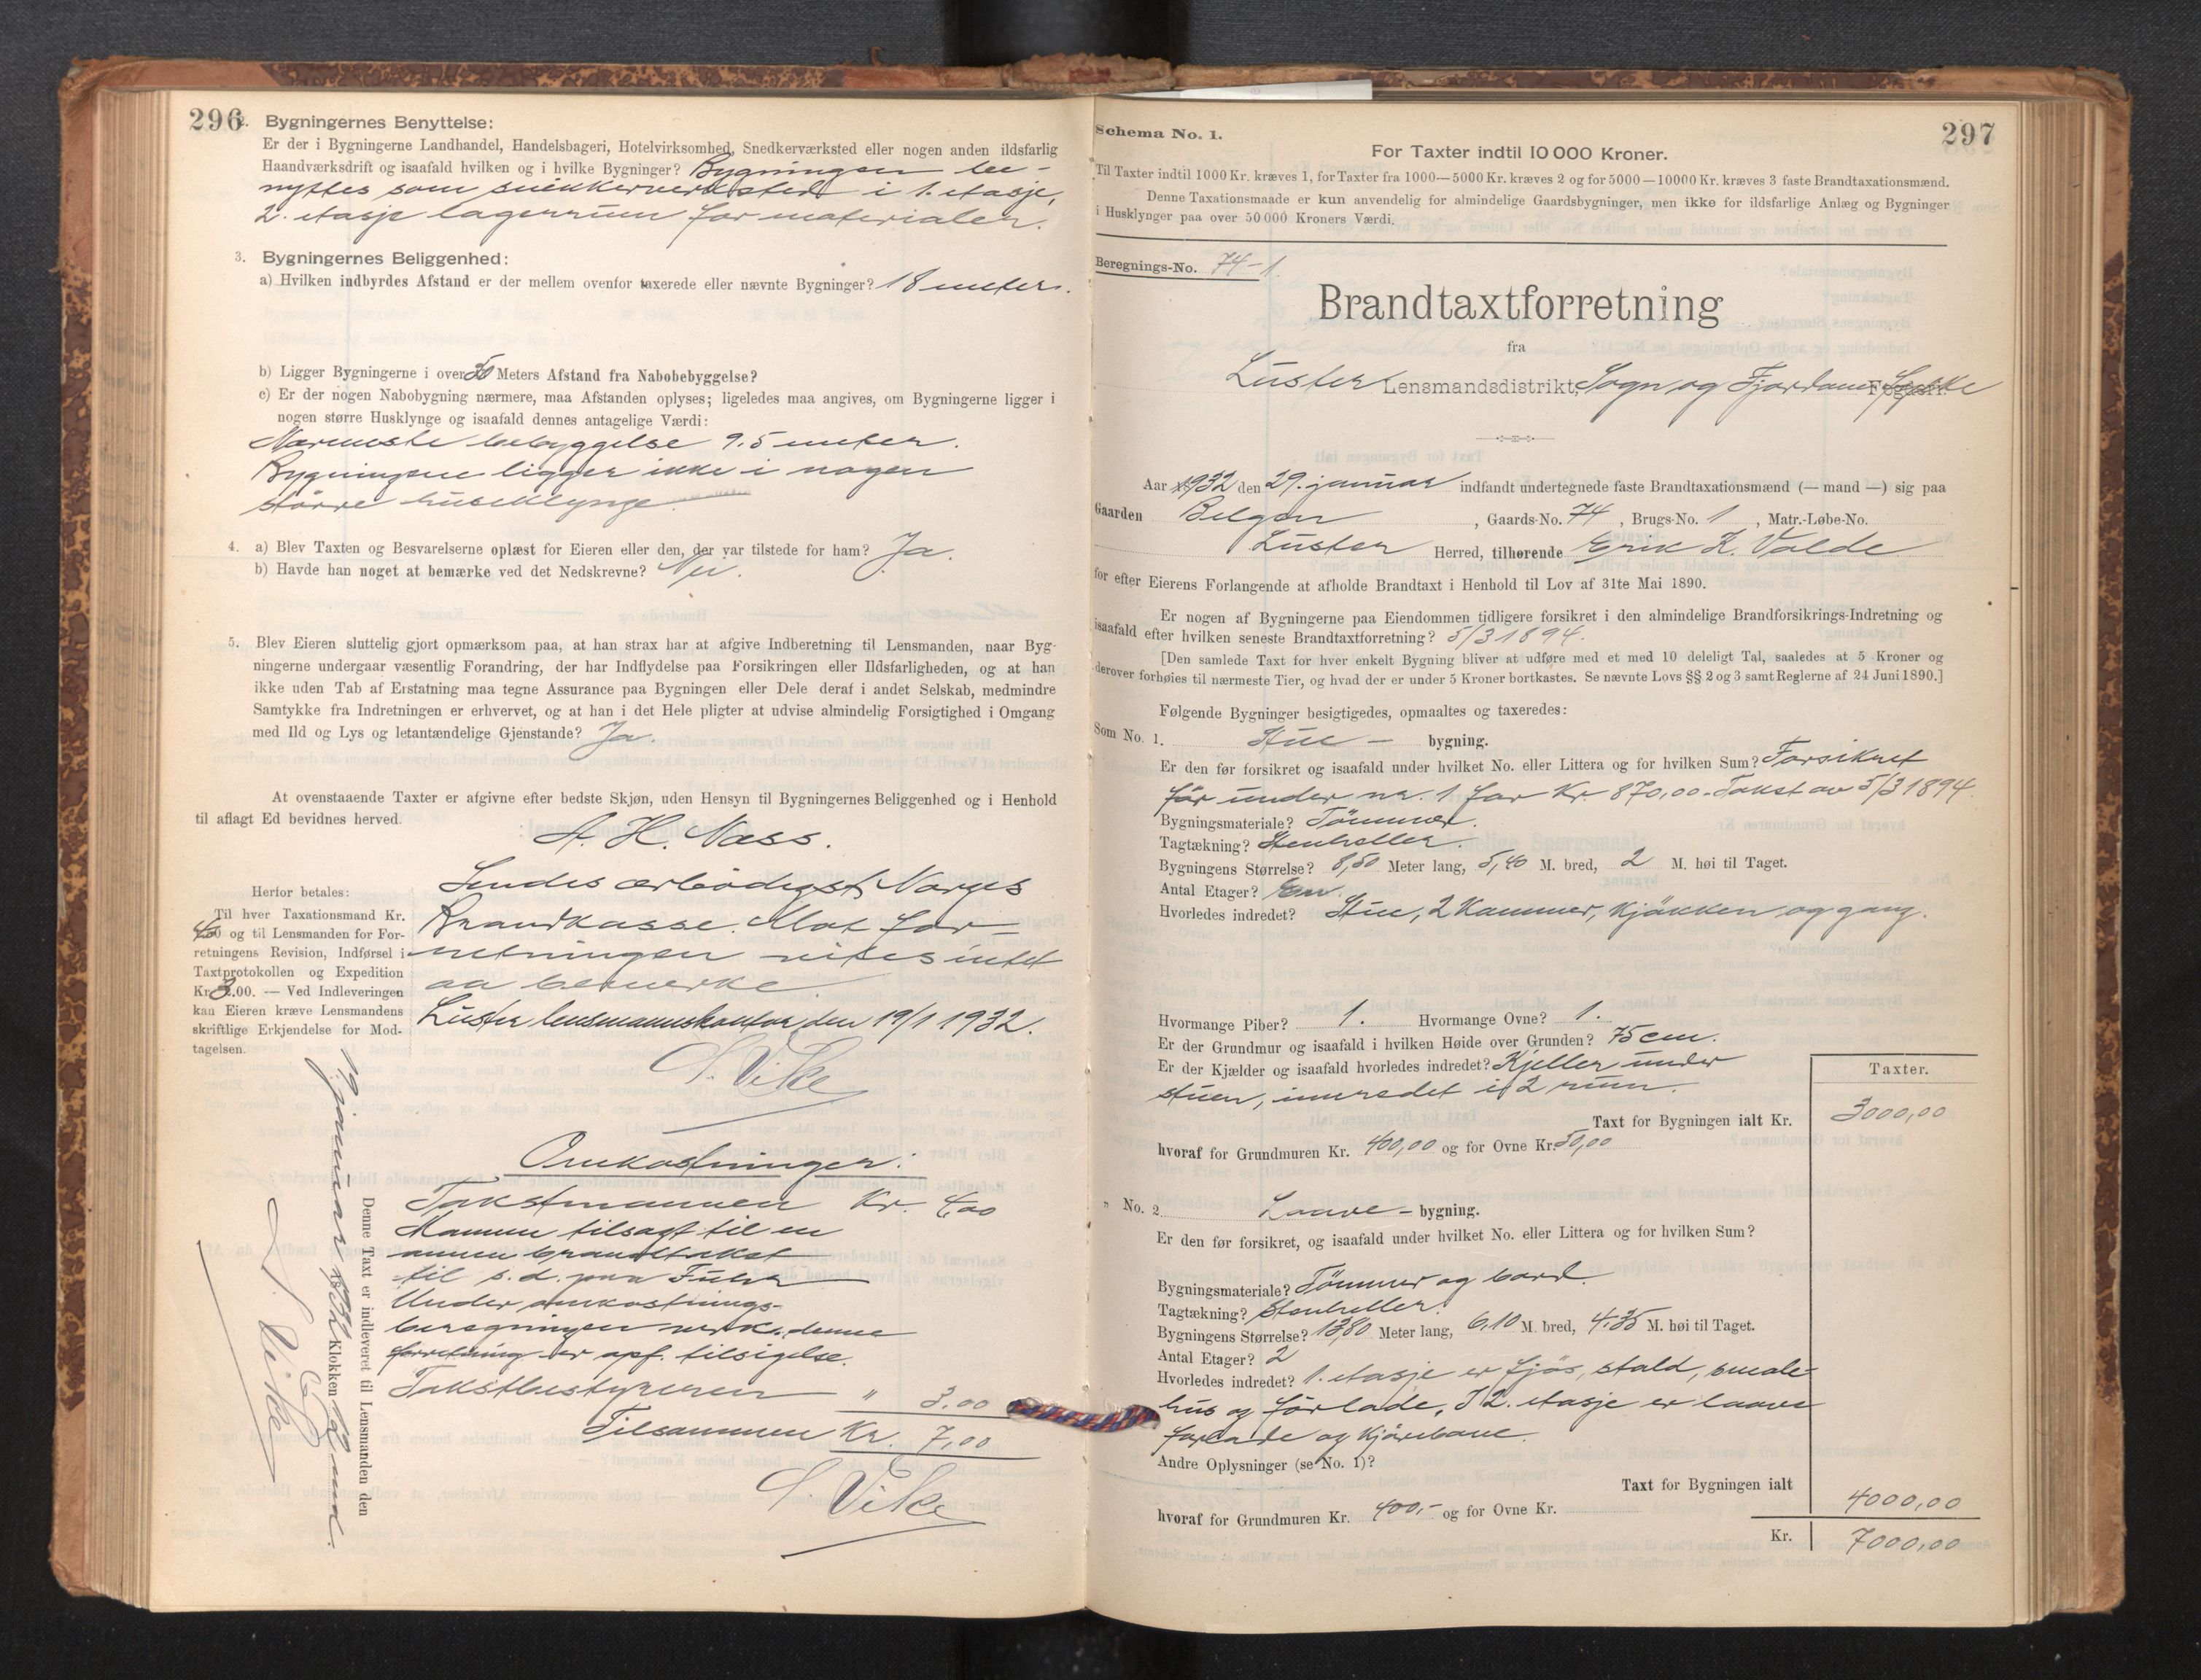 296
2. Bygningernes Benyttelse:
Er der i Bygningerne Landhandel, Handelsbageri, Hotelvirksomhed, Snedkerværksted eller nogen anden ildsfarlig
Haandværksdrift og isaafald hvilken og i hvilke Bygninger? Bygningen be-
nyttes som snekkerverksted i 1. etasje,
2. etasje lagerrum for materialer.
3. Bygningernes Beliggenhed:
a) Hvilken indbyrdes Afstand er der mellem ovenfor taxerede eller nævnte Bygninger? 18 meter.
b) Ligger Bygningerne i over 50 Meters Afstand fra Nabobebyggelse?
c) Er der nogen Nabobygning nærmere, maa Afstanden oplyses; ligeledes maa angives, om Bygningerne ligger i
nogen større Husklynge og isaafald dennes antagelige Værdi:
Nærmeste bebyggelse 9.5 meter.
Bygningene ligger ikke i nogen
större husklynge.
4. a) Blev Taxten og Besvarelserne oplæst for Eieren eller den, der var tilstede for ham? Ja.
b) Havde han noget at bemærke ved det Nedskrevne? Nei.
5. Blev Eieren sluttelig gjort opmærksom paa, at han strax har at afgive Indberetning til Lensmanden, naar Byg-
ningerne undergaar væsentlig Forandring, der har Indflydelse paa Forsikringen eller Ildsfarligheden, og at han
ikke uden Tab af Erstatning maa tegne Assurance paa Bygningen eller Dele deraf i andet Selskab, medmindre
Samtykke fra Indretningen er erhvervet, og at han i det Hele pligter at udvise almindelig Forsigtighed i Omgang
med Ild og Lys og letantændelige Gjenstande? Ja.
At ovenstaaende Taxter er afgivne efter bedste Skjøn, uden Hensyn til Bygningernes Beliggenhed og i Henhold
til aflagt Ed bevidnes herved.
A. H. Næss.
Sendes ærbödigst Norges
Brandkasse. Mot for-
retningen vites intet
aa bemerke.
Luster lensmannskontor, den 19/1 1932.
S. Vike
Herfor betales:
Til hver Taxationsmand Kr.
4,00 og til Lensmanden for For-
retningens Revision, Indførsel i
Taxtprotokollen og Expedition
Kr. 3.00. — Ved Indleveringen
kan Eieren kræve Lensmandens
skriftlige Erkjendelse for Mod-
tagelsen.
Denne Taxt er indleveret til Lensmanden den
19. januar 1932 Klokken
S. Vike
Omkostninger:
Takstmannen Kr. 4,00
Mannen tilsagt til en
annen brandtakst
til s. d. paa
Under omkostnings-
beregningen denne
forretning er opf. tilsigelse.
Takstbestyreren " 3.00
Tilsammen Kr. 7,00
S. Vike
297
Schema No. 1.
For Taxter indtil 10 000 Kroner.
Til Taxter indtil 1000 Kr. kræves 1, for Taxter fra 1000—5000 Kr. kræves 2 og for 5000—10000 Kr. kræves 3 faste Brandtaxationsmænd.
Denne Taxationsmaade er kun anvendelig for almindelige Gaardsbygninger, men ikke for ildsfarlige Anlæg og Bygninger
i Husklynger paa over 50 000 Kroners Værdi.
Beregnings-No. 74-1.
Brandtaxtforretning
fra
Luster Lensmandsdistrikt, Sogn og Fjordane Fylke Fogderi.
Aar 1932 den 29. januar indfandt undertegnede faste Brandtaxationsmænd (— mand —) sig paa
Gaarden Bolgen, Gaards-No. 74, Brugs-No. 1, Matr.-Løbe-No.
Luster Herred, tilhørende Erik K. Valde
for efter Eierens Forlangende at afholde Brandtaxt i Henhold til Lov af 31te Mai 1890.
Er nogen af Bygningerne paa Eiendommen tidligere forsikret i den almindelige Brandforsikrings-Indretning og
isaafald efter hvilken seneste Brandtaxtforretning? 5/3 1894.
[Den samlede Taxt for hver enkelt Bygning bliver at udføre med et med 10 deleligt Tal, saaledes at 5 Kroner og
derover forhøies til nærmeste Tier, og hvad der er under 5 Kroner bortkastes. Se nævnte Lovs §§ 2 og 3 samt Reglerne af 24 Juni 1890.]
Følgende Bygninger besigtigedes, opmaaltes og taxeredes:
Som No. 1. Stue - bygning.
Er den før forsikret og isaafald under hvilket No. eller Littera og for hvilken Sum? Forsikret
för under nr. 1 for Kr. 870,00. Takst av 5/3 1894.
Bygningsmateriale? Tömmer.
Tagtækning? Stenheller.
Bygningens Størrelse? 8,50 Meter lang, 5,40 M. bred, 2 M. høi til Taget.
Antal Etager? En.
Hvorledes indredet? Stue, 2 Kammer, Kjökken og gang.
Hvormange Piber? 1. Hvormange Ovne? 1.
Er der Grundmur og isaafald i hvilken Høide over Grunden? 75 cm.
Er der Kjælder og isaafald hvorledes indredet? Kjeller under
stuen, innredet i 2 rum.
Taxter.
Taxt for Bygningen ialt Kr. 3000,00
hvoraf for Grundmuren Kr. 400,00 og for Ovne Kr. 50,00
" No. 2 Laave - bygning.
Er den før forsikret, og isaafald under hvilket No. eller Littera og for hvilken Sum?
Bygningsmateriale? Tömmer og bord.
Tagtækning? Stenheller.
Bygningens Størrelse? 13,80 Meter lang, 6,10 M. bred, 4.35 M. høi til Taget.
Antal Etager? 2
Hvorledes indredet? 1. etasje er fjös, stald, smale-
hus og förlade, I 2. etasje er laave
forlade og Kjörebane.
Andre Oplysninger (se No. 1)?
Taxt for Bygningen ialt 4000,00
hvoraf for Grundmuren Kr. 400,- og for Ovne Kr.
Kr. 7000,00